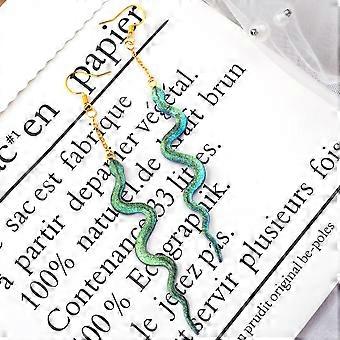 #1
ac en papier
sac est fabriqué
à partir de papier végétal.
100% naturel de kraft brun
Contenance 33 litres.
100% Ecographik.
ne le jetez pas.
servir plusieurs fois
en prudit original be-poles